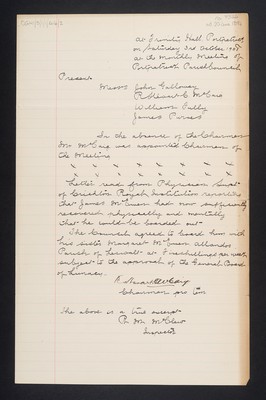 At Franklin Hall, Portpatrick
on Saturday 3rd October 1908
at the Monthly Meeting of
Portpatrick Parish Council
Present
Messrs John Galloway
William
James Purves
In the absence of the Chairman
Mr McCaig was appointed Chairman of
the Meeting
x x x x x x x x
x x x x x x x
Letter read from Physician Supt
of Crichton Royal Institution reporting
that James had now sufficiently
recovered physically and mentally
that he could be boarded out
The Council agreed to board him with
his sister Margaret
Parish of at per week
subject to the approval of the General Board
of Lunacy.
Chairman pro tem
The above is a true excerpt
Inspector